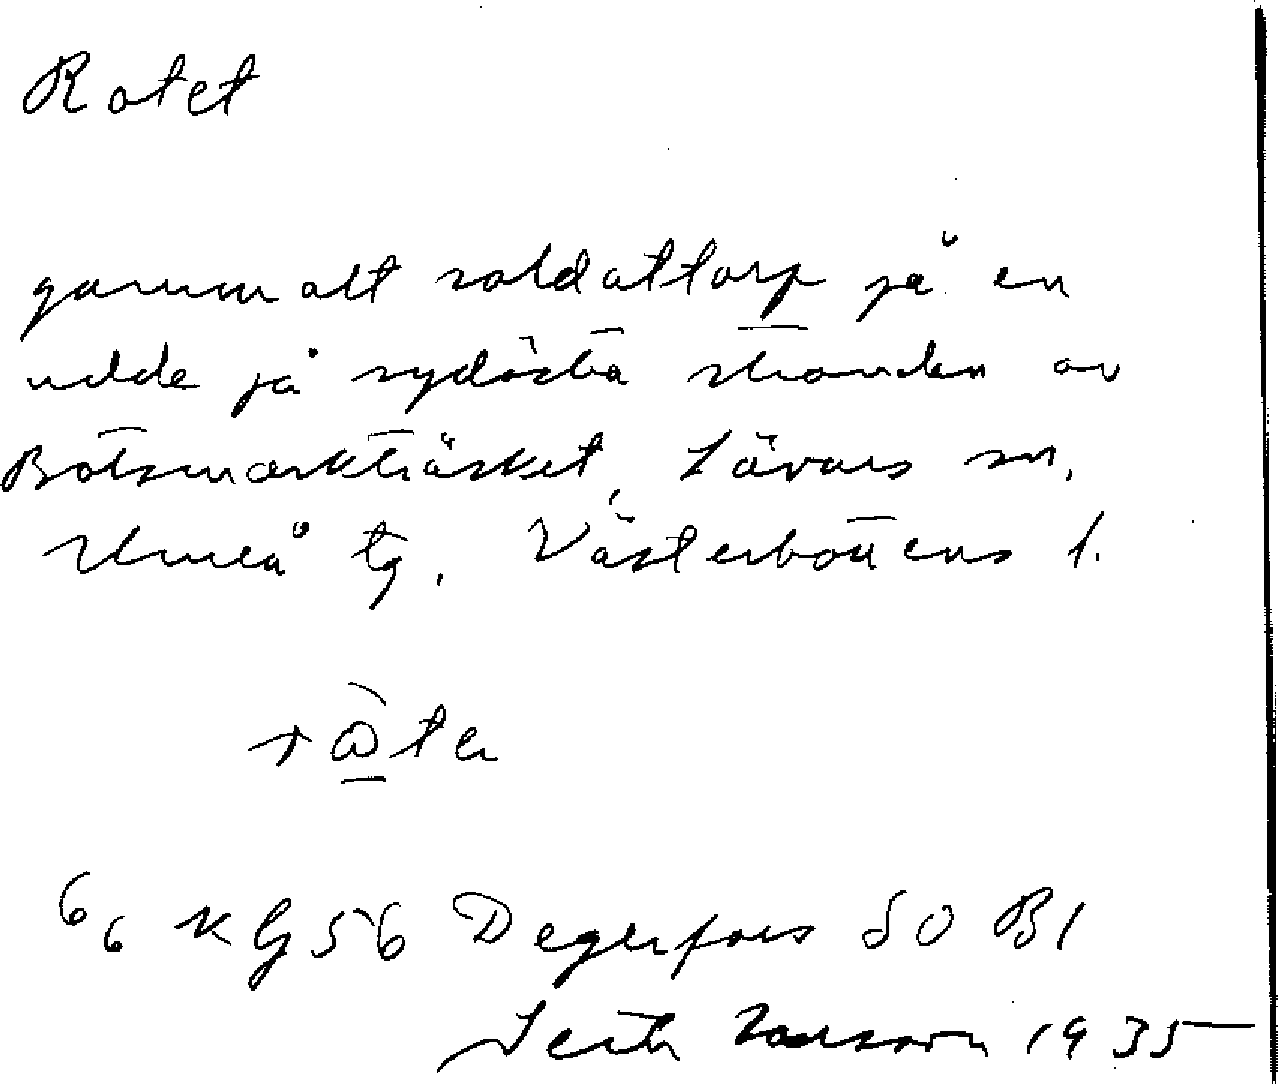 Rotet
gammalt soldattorp på en
udde på sydöstra stranden av
Botsmarkträsket, Sävars sn,
Umeå tg, Västerbottens l.
KG 56 Degerfors SO B1
Seth Larsson 1935